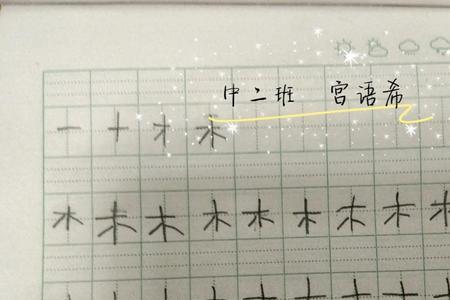 中二班 宫语希
一 十 才 木
木 木 木 木 木 木 木 木 木